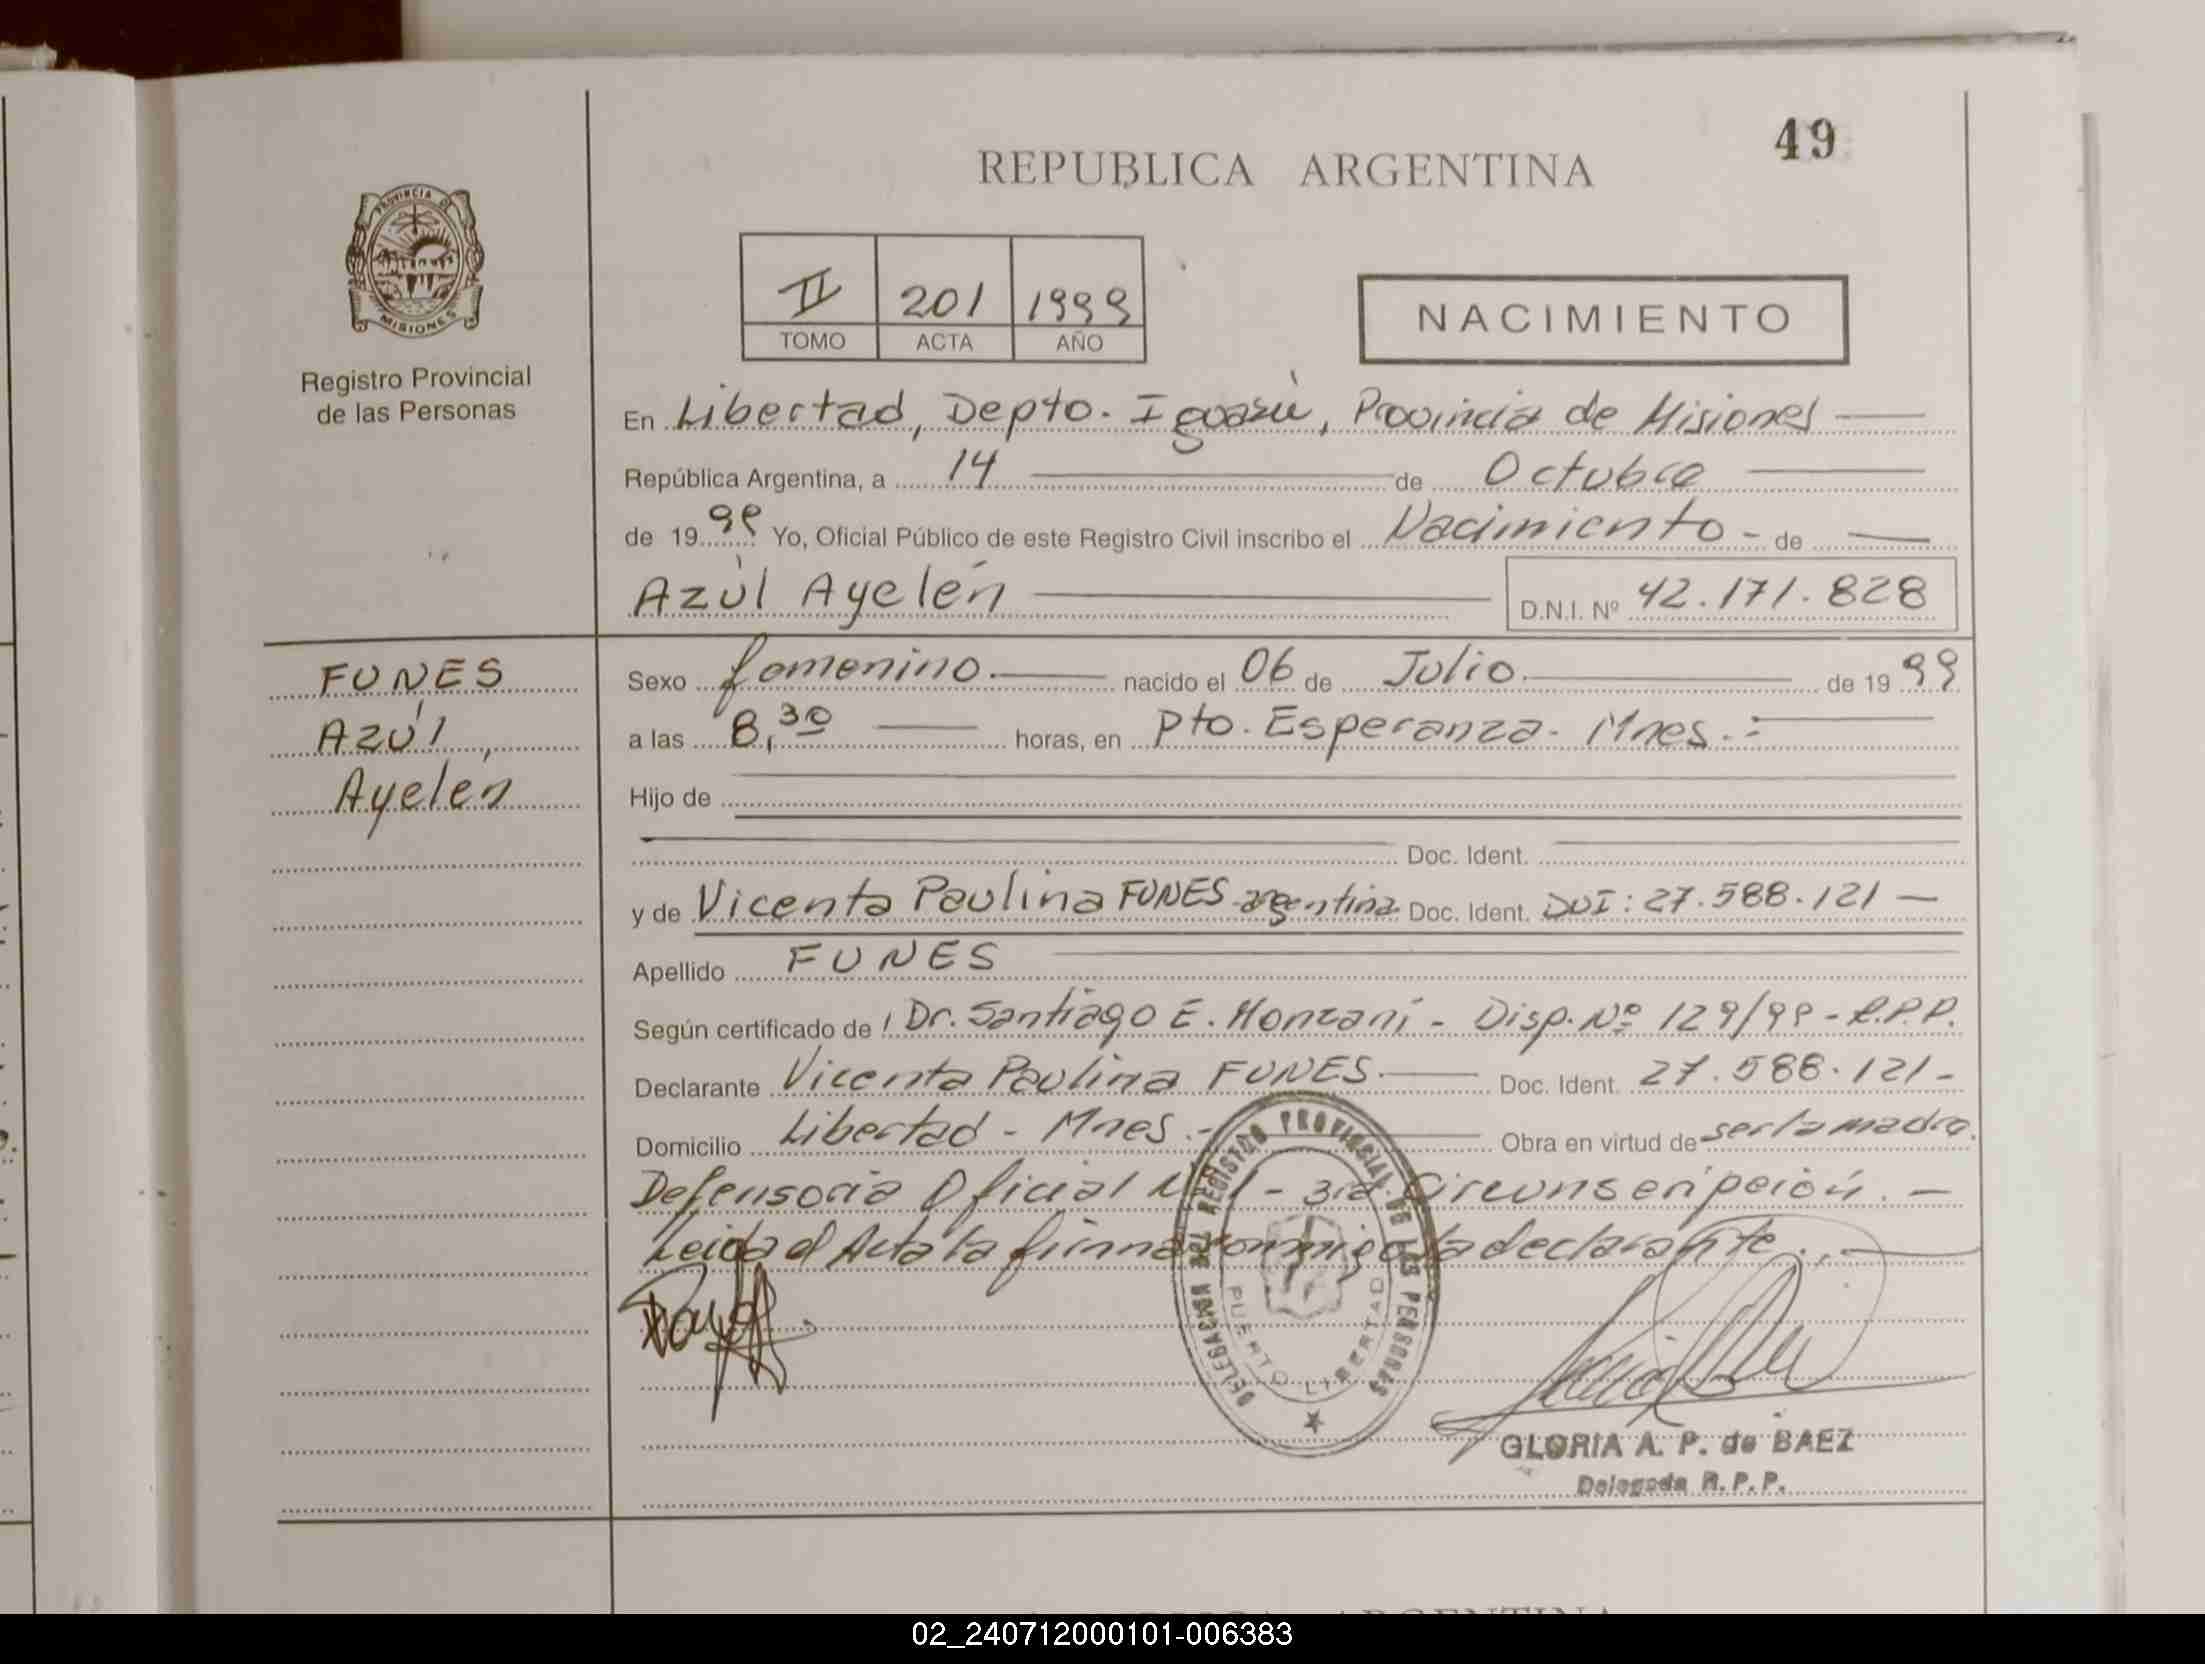 49
REPUBLICA ARGENTINA
PROVINCIA DE
MISIONES
Registro Provincial
de las Personas
II 201 1999
TOMO ACTA AÑO
NACIMIENTO
En Libertad, Depto. Iguazú, Provincia de Misiones
República Argentina, a 14 de Octubre
de 1999 Yo, Oficial Público de este Registro Civil inscribo el Nacimiento - de
Azúl Ayelén D.N.I. Nº 42.171.828
FUNES
Azúl,
Ayelen
Sexo femenino nacido el 06 de Julio de 1999
a las 8,30 horas, en Pto. Esperanza - Mnes. -
Hijo de
Doc. Ident.
y de Vicenta Paulina FUNES - argentina Doc. Ident. DUI: 27.588.121 -
Apellido FUNES
Según certificado de Dr. Santiago E. Monzani - Disp. Nº 129/99 - R.P.P.
Declarante Vicenta Paulina FUNES Doc. Ident. 27.588.121 -
Domicilio Libertad - Mnes. - Obra en virtud de ser la madre.
Defensoria Oficial - 3ra. Circunscripción. -
Leida el Acta la firma conmigo la declarante.
DELEGACION DEL REGISTRO PROVINCIAL DE LAS PERSONAS
PUERTO LIBERTAD
GLORIA A. P. de BAEZ
Delegada R.P.P.
ARGENTINA
02_240712000101-006383